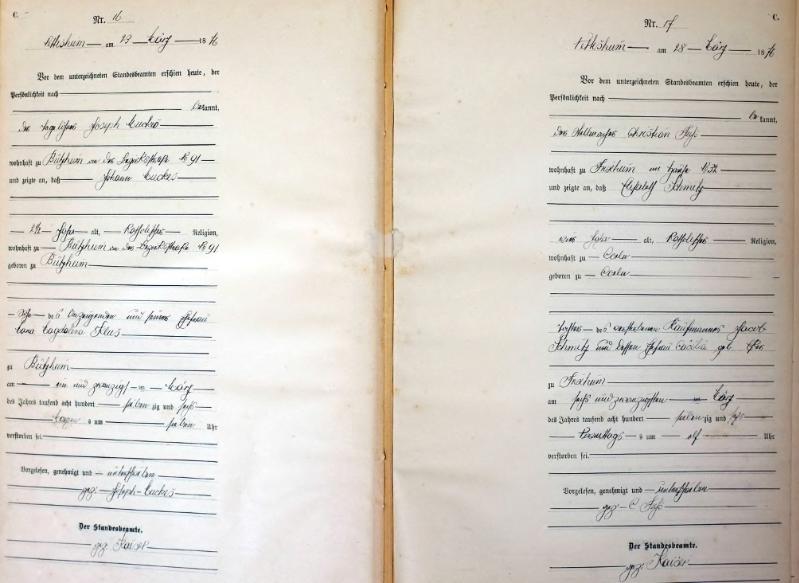 C.
Nr. 16
am 23 März 1876
Vor dem unterzeichneten Standesbeamten erschien heute, der
Persönlichkeit nach
bekannt,
der Joseph
wohnhaft zu Bützheim in der Bezirksstraße № 91
und zeigte an, daß Johann
2½ Jahre alt, Katholischer Religion,
wohnhaft zu Bützheim in der Bezirksstraße № 91
geboren zu Bützheim
Sohn des Anzeigenden und seiner Ehefrau
Magdalena
zu Bützheim
am ein und zwanzigsten März
des Jahres tausend acht hundert siebenzig und sechs
um sieben Uhr
verstorben sei.
Vorgelesen, genehmigt und unterschrieben
gez. Joseph
Der Standesbeamte.
gez. Kaiser
C.
Nr. 17
am 28 März 1876
Vor dem unterzeichneten Standesbeamten erschien heute, der
Persönlichkeit nach
bekannt,
der Christian
wohnhaft zu Frixheim im Hause № 32
und zeigte an, daß Elisabeth Schmitz
Jahr alt, Katholischer Religion,
wohnhaft zu Coeln
geboren zu Coeln
Tochter des verstorbenen Kaufmannes Jacob
Schmitz und dessen Ehefrau Cäcilia geb.
zu Frixheim
am sechs und zwanzigsten März
des Jahres tausend acht hundert siebenzig und sechs
Vormittags um elf Uhr
verstorben sei.
Vorgelesen, genehmigt und unterschrieben
gez. C
Der Standesbeamte.
gez. Kaiser